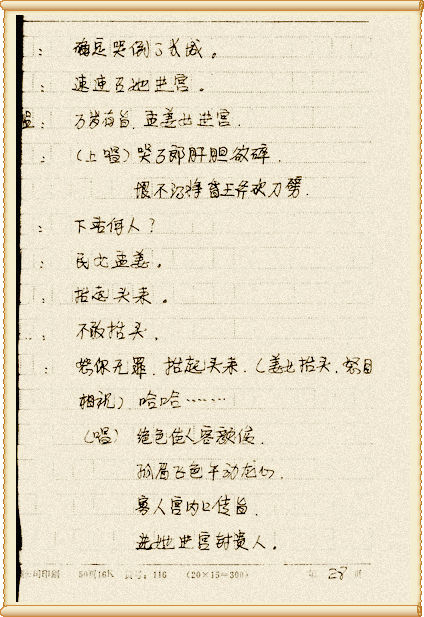 : 确是哭倒了长城。
: 速速召她进宫。
: 万岁有旨,孟姜女进宫.
: (上唱)哭了郎肝胆欲碎.
恨不能将昏王斧砍刀劈.
: 下者何人?
: 民女孟姜。
: 抬起头来。
: 不敢抬头.
: 恕你无罪,抬起头来.(姜女抬头,怒目
相视)哈哈……
(唱)绝色佳人客
飞色午动龙心.
宫内口传旨.
选她进宫封贵人.
印刷 50页16K 货号:116 (20×15=300) 第 28 页